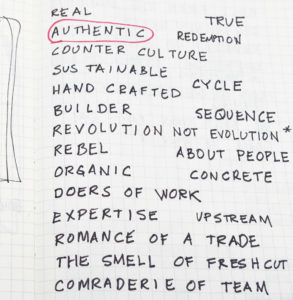 REAL
TRUE
AUTHENTIC
REDEMPTION
COUNTER CULTURE
SUSTAINABLE
HAND CRAFTED
CYCLE
BUILDER
SEQUENCE
REVOLUTION NOT EVOLUTION *
REBEL
ABOUT PEOPLE
ORGANIC
CONCRETE
DOERS OF WORK
EXPERTISE
UPSTREAM
ROMANCE OF A TRADE
THE SMELL OF FRESH CUT
COMRADERIE OF TEAM